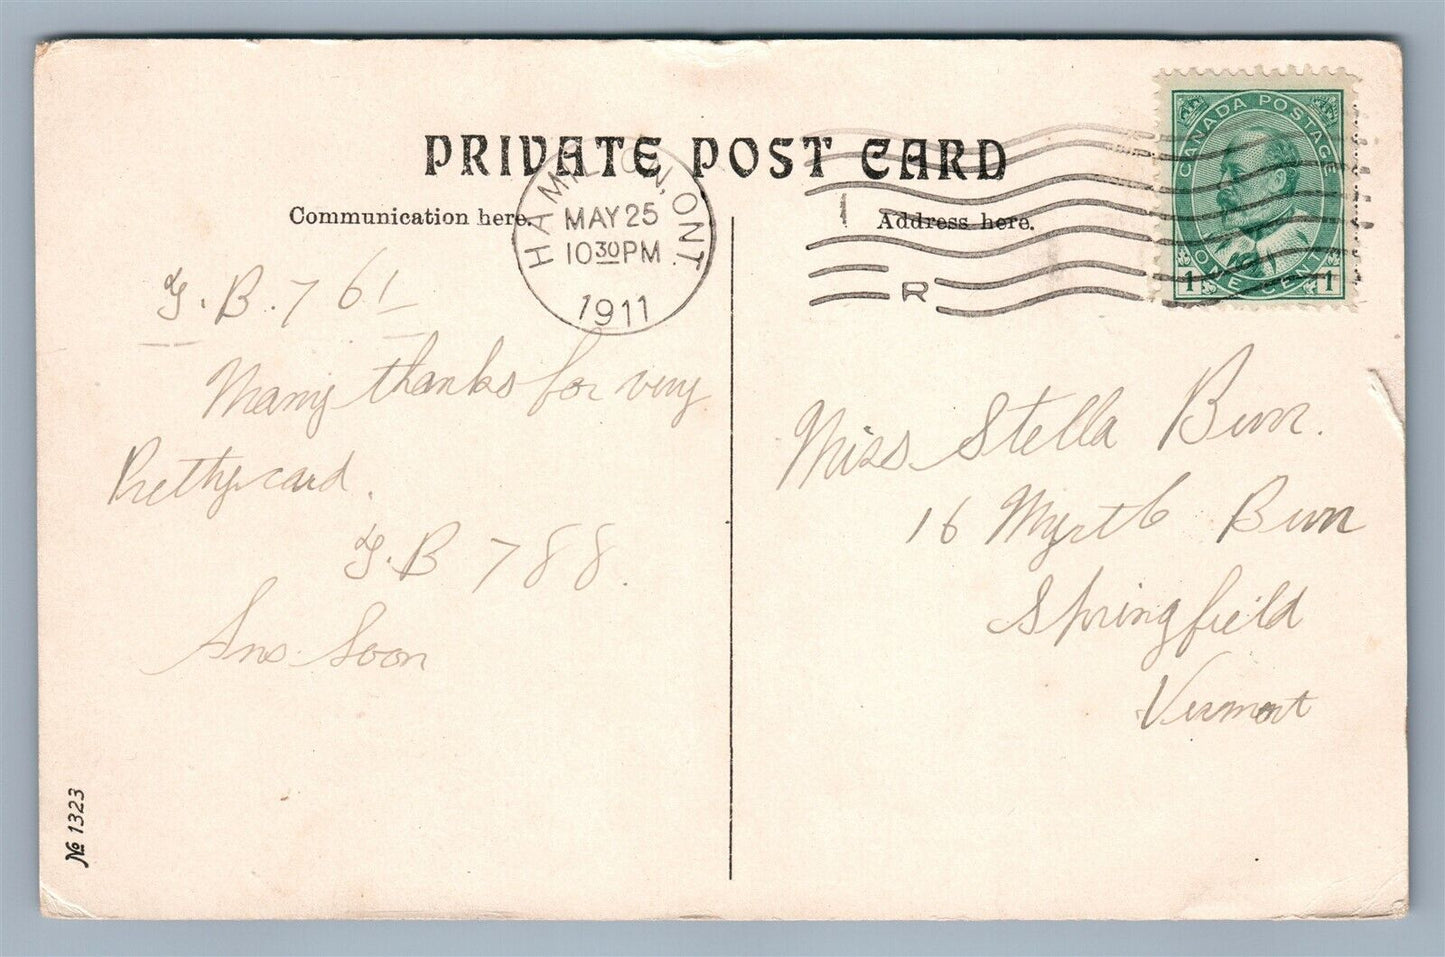 PRIVATE POST CARD
Communication here.
Address here.
HAMILTON, ONT.
MAY 25
10 30 PM
1911
R
CANADA POSTAGE
1 ONE CENT 1
G.B. 761
Many thanks for very
Pretty card.
G.B 788.
Ans. Soon
Miss Stella Burr.
16 Myrtle Burr
Springfield
Vermont
№ 1323